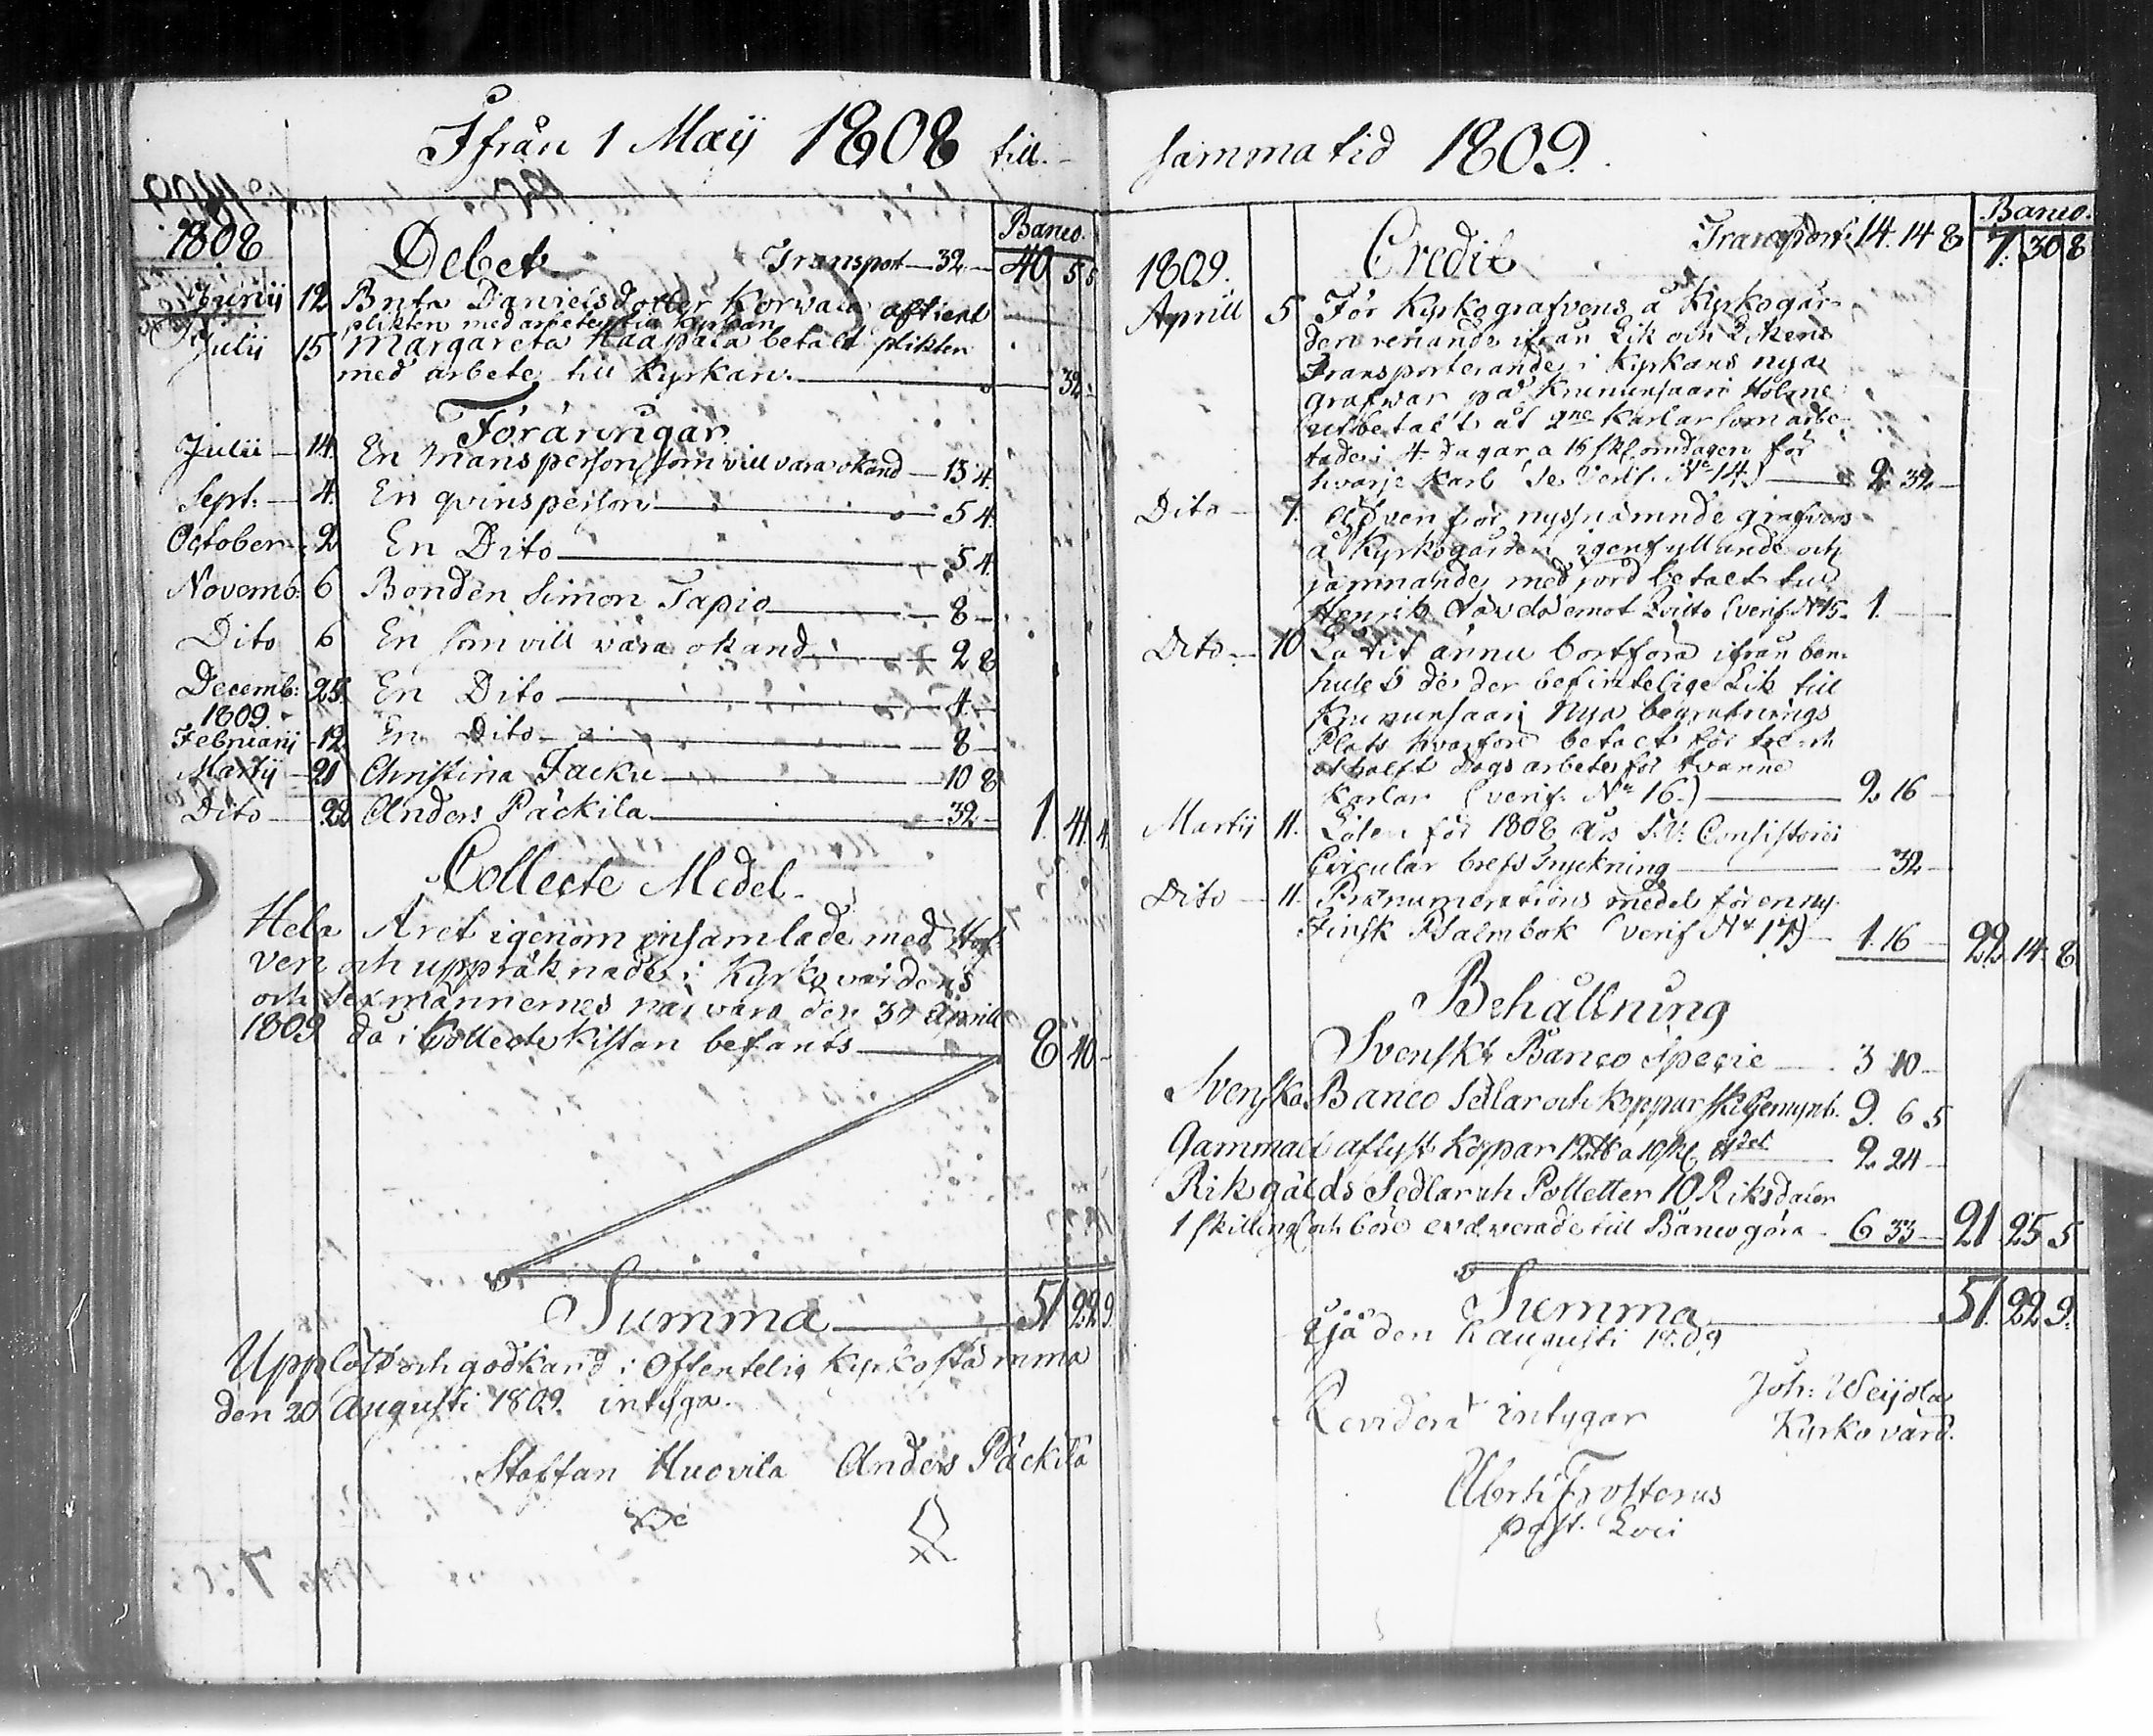 Ifrån 1 Maij 1808 till
Banco.
1808 Debet Transport 32 40 5 5
Junij 12 Brita Danielsdotter Korvala aftient
plikten med arbete till Kyrkan
Julij 15 Margareta Haapala betalt plikten
med arbete till Kyrkan. 32
Föräringar
Julii 14. En Mansperson som vill vara okänd 13 4.
Sept: 4. En qvinsperson 5 4.
October 2 En Dito 5 4.
Novemb: 6 Bonden Simon Tapio 8
Dito 6 En som vill vara okänd 2 8
Decemb: 25. En Dito 4
1809.
Februarij 12 En Dito 8
Martij 21 Christina Jacku 10 8
Dito 22 Anders Päckilä 32 1. 41. 4
Collecte Medel
Hela Året igenom insamlade med Haf-
ven och uppräknade i Kyrkovärdens
och Sexmännernes närvaro den 30 Aprill
1809 då i Collecte Kistan befants 8 40
Summa 51 22 9.
Uppläst och godkänd i Offentelig Kyrkostämma
den 20 Augusti 1809. intyga.
Staffan Huovila Anders Päckilä
samma tid 1809.
Banco.
1809. Credit Transport 14. 14 8 7. 30 8
Aprill 5 För Kyrkografvens å Kyrkogår-
den renande ifrån Lik och Likens
Transporterande i Kyrkans nya
grafwar på Krununsaari Holme
utbetalt åt 2ne Karlar som arbe-
tade i 4 dagar a 16 sk om dagen för
hvarje Karl (Se Verif. No 14) 2 32
Dito 7. Äfven för nyssnämnde grafvens
å Kyrkogården igenfyllande och
jämnande med jord betalt till
Henrik emot Qvitto (verif. No 15 1.
Dito 10 Låtit ännu bortföra ifrån ben-
huset de der befintelige Lik till
Krununsaari Nya begrafnings
Plats hvarföre betalt för tre och
ett halft dags arbete för tvänne
Karlar (verif. No 16) 2 16
Martij 11. Lösen för 1808 års Consistorii
Circulär brefs Tryckning 32
Dito 11. Prænumerations medel för en ny
Finsk Psalmbok (verif No 17) 1. 16 22 14 8
Behållning
Svenskt Banco Specie 3 10
Svenska Banco Sedlar och Koppar skiljemynt. 9. 6 5
Gammalt aflyst Koppar 12 ℔ a 10 sk ℔det 2 24
Riksgälds Sedlar och Polletter 10 Riksdaler
1 skilling och 6 öre evalverade till Banco göra 6 33 21 25 5
Summa 51. 22 9.
Ijå den augusti 1809
Joh: Weijola
Kyrkovärd.
Reviderat intygar
Abrh: Frosterus
past. Loci